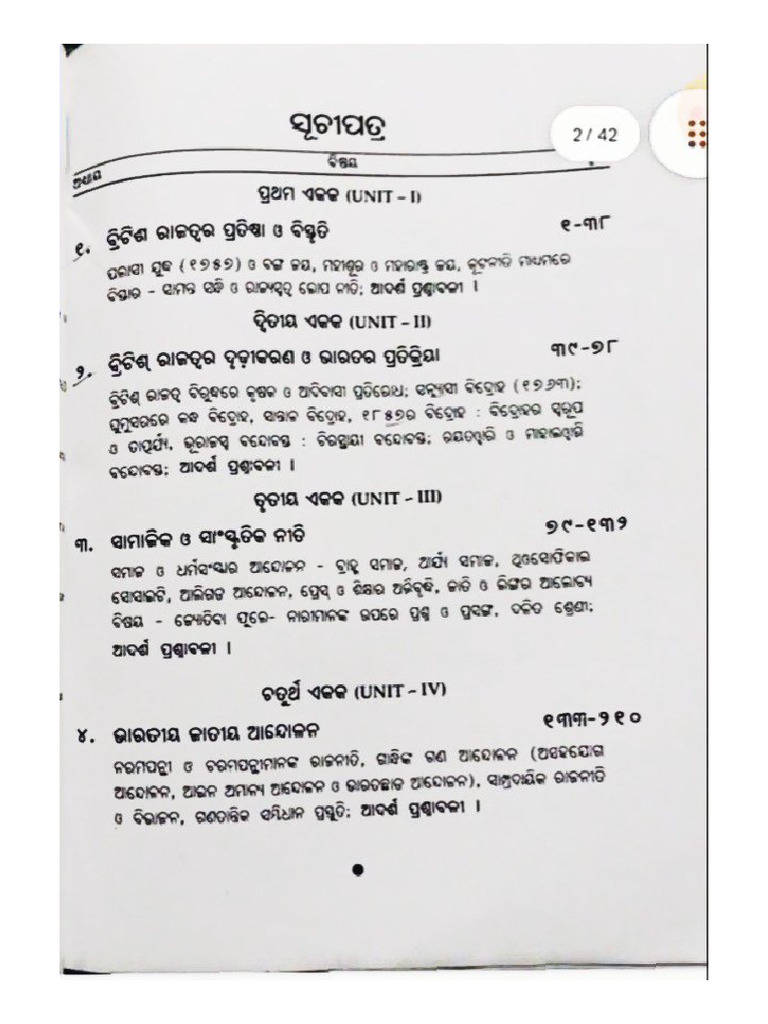 ସୂଚୀପତ୍ର
2 / 42
ଅଧ୍ୟାୟ
ବିଷୟ
ପ୍ରଥମ ଏକକ (UNIT – I)
୧. ବ୍ରିଟିଶ ରାଜତ୍ୱର ପ୍ରତିଷ୍ଠା ଓ ବିସ୍ତୃତି ୧-୩୮
ପଲାସୀ ଯୁଦ୍ଧ (୧୭୫୭) ଓ ବଙ୍ଗ ଜୟ, ମହୀଶୂର ଓ ମହାରାଷ୍ଟ୍ର ଜୟ, କୂଟନୀତି ମାଧ୍ୟମରେ
ବିସ୍ତାର – ସାମନ୍ତ ସନ୍ଧି ଓ ରାଜ୍ୟସ୍ୱତ୍ୱ ଲୋପ ନୀତି; ଆଦର୍ଶ ପ୍ରଶ୍ନାବଳୀ ।
ଦ୍ୱିତୀୟ ଏକକ (UNIT – II)
୨. ବ୍ରିଟିଶ୍ ରାଜତ୍ୱର ଦୃଢ଼ୀକରଣ ଓ ଭାରତର ପ୍ରତିକ୍ରିୟା ୩୯-୭୮
ବ୍ରିଟିଶ୍ ରାଜତ୍ୱ ବିରୁଦ୍ଧରେ କୃଷକ ଓ ଆଦିବାସୀ ପ୍ରତିରୋଧ; ସନ୍ନ୍ୟାସୀ ବିଦ୍ରୋହ (୧୭୬୩);
ଘୁମୁସରରେ କନ୍ଧ ବିଦ୍ରୋହ, ସାନ୍ତାଳ ବିଦ୍ରୋହ, ୧୮୫୭ର ବିଦ୍ରୋହ : ବିଦ୍ରୋହର ସ୍ୱରୂପ
ଓ ତାତ୍ପର୍ଯ୍ୟ, ଭୂରାଜସ୍ୱ ବନ୍ଦୋବସ୍ତ : ଚିରସ୍ଥାୟୀ ବନ୍ଦୋବସ୍ତ; ରୟତୱାରି ଓ ମାହାଲୱାରି
ବନ୍ଦୋବସ୍ତ; ଆଦର୍ଶ ପ୍ରଶ୍ନାବଳୀ ।
ତୃତୀୟ ଏକକ (UNIT – III)
୩. ସାମାଜିକ ଓ ସାଂସ୍କୃତିକ ନୀତି ୭୯-୧୩୨
ସମାଜ ଓ ଧର୍ମସଂସ୍କାର ଆନ୍ଦୋଳନ – ବ୍ରାହ୍ମ ସମାଜ, ଆର୍ଯ୍ୟ ସମାଜ, ଥିଓସୋଫିକାଲ
ସୋସାଇଟି, ଆଲିଗଡ଼ ଆନ୍ଦୋଳନ, ପ୍ରେସ୍ ଓ ଶିକ୍ଷାର ଅଭିବୃଦ୍ଧି, ଜାତି ଓ ଲିଙ୍ଗର ଆଲୋଚ୍ୟ
ବିଷୟ – ଜ୍ୟୋତିବା ଫୁଲେ- ନାରୀମାନଙ୍କ ଉପରେ ପ୍ରଶ୍ନ ଓ ପ୍ରସଙ୍ଗ, ଦଳିତ ଶ୍ରେଣୀ;
ଆଦର୍ଶ ପ୍ରଶ୍ନାବଳୀ ।
ଚତୁର୍ଥ ଏକକ (UNIT – IV)
୪. ଭାରତୀୟ ଜାତୀୟ ଆନ୍ଦୋଳନ ୧୩୩-୨୧୦
ନରମପନ୍ଥୀ ଓ ଚରମପନ୍ଥୀମାନଙ୍କ ରାଜନୀତି, ଗାନ୍ଧିଙ୍କ ଗଣ ଆନ୍ଦୋଳନ (ଅସହଯୋଗ
ଆନ୍ଦୋଳନ, ଆଇନ ଅମାନ୍ୟ ଆନ୍ଦୋଳନ ଓ ଭାରତଛାଡ଼ ଆନ୍ଦୋଳନ), ସାମ୍ପ୍ରଦାୟିକ ରାଜନୀତି
ଓ ବିଭାଜନ, ଗଣତାନ୍ତ୍ରିକ ସମ୍ବିଧାନ ପ୍ରସ୍ତୁତି; ଆଦର୍ଶ ପ୍ରଶ୍ନାବଳୀ ।